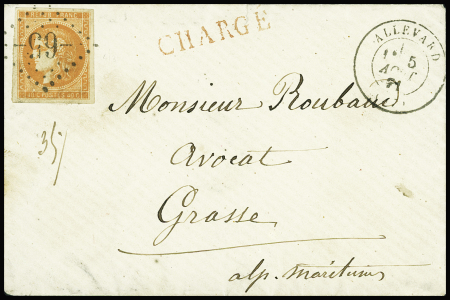 69
CHARGÉ
ALLEVARD
5
AOUT
71
35
Monsieur Roubaud
Avocat
Grasse
alp. maritimes